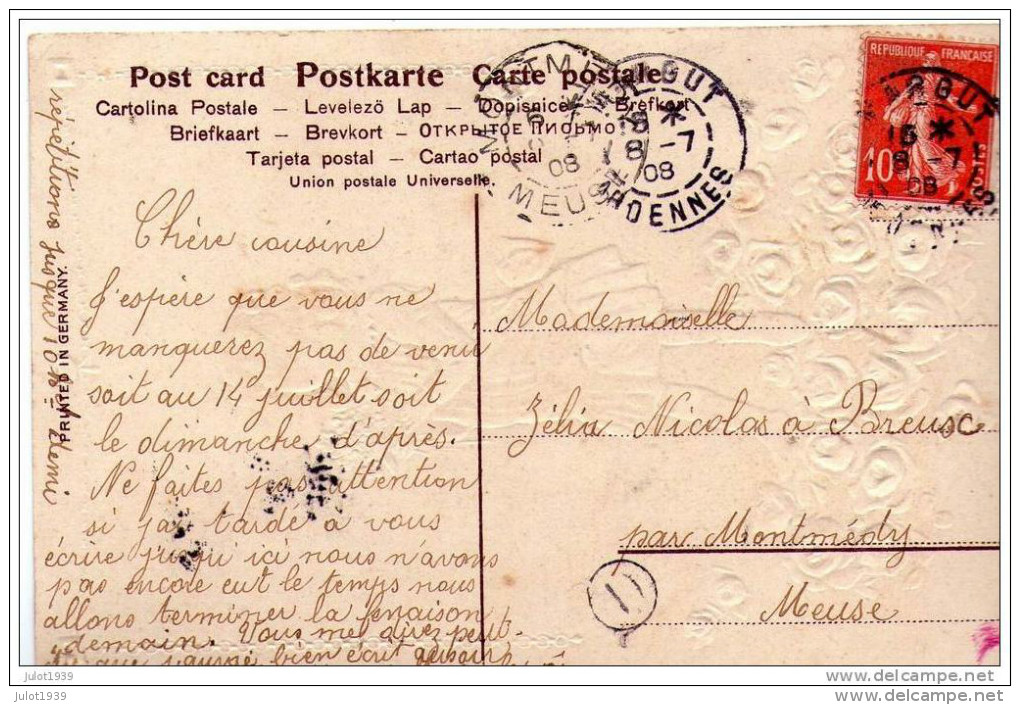 Post card Postkarte Carte postale
Cartolina Postale – Levelező Lap – Dopisnice – Brefkort
Briefkaart – Brevkort – Открытое письмо
Tarjeta postal – Cartao postal
Union postale Universelle.
MEUSE
08
MARGUT
8 - 7
08
ARDENNES
REPUBLIQUE FRANÇAISE
10
POSTES
MARGUT
8 - 7
08
PRINTED IN GERMANY.
Chère cousine
J'espère que vous ne
manquerez pas de venir
soit au 14 juillet soit
le dimanche d'après.
Ne faites pas attention
si j'ai tardé a vous
écrire jusqu'ici nous n'avons
pas encore eut le temps nous
allons terminer la fenaison
demain. Vous me direz peut-
que bien écrit
répétitions jusque 10 h et demi
Mademoiselle
Zélia Nicolas à Breux
par Montmédy
Meuse
D
julot1939
julot1939
http://www.delcampe.net
http://www.delcampe.net